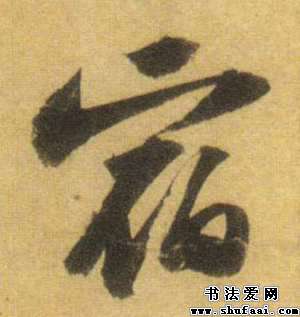 宿
书法爱网
www.shufaai.com